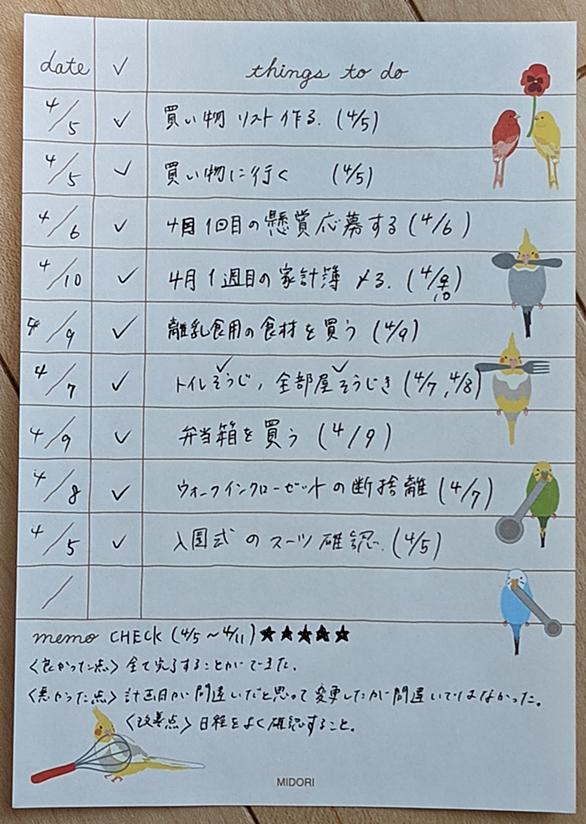 date ✓ things to do
4/5 ✓ 買い物リスト作る. (4/5)
4/5 ✓ 買い物に行く (4/5)
4/6 ✓ 4月1回目の懸賞応募する (4/6)
4/10 ✓ 4月1週目の家計簿〆る. (4/10)
4/9 ✓ 離乳食用の食材を買う (4/9)
4/7 ✓ トイレそうじ, 全部屋そうじき (4/7, 4/8)
4/9 ✓ 弁当箱を買う (4/9)
4/8 ✓ ウォークインクローゼットの断捨離 (4/7)
4/5 ✓ 入園式のスーツ確認. (4/5)
/
memo CHECK (4/5～4/11) ★★★★★
〈良かった点〉全て完了することができた.
〈悪かった点〉計画日が間違いだと思って変更したが間違いではなかった。
〈改善点〉日程をよく確認すること。
MIDORI